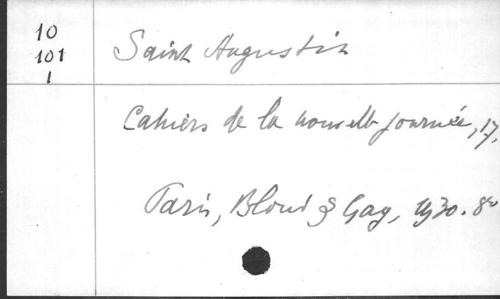 10
101
1
Saint Augustin
Cahiers de la nouvelle journée, 17,
Paris, Bloud & Gay, 1930. 8º